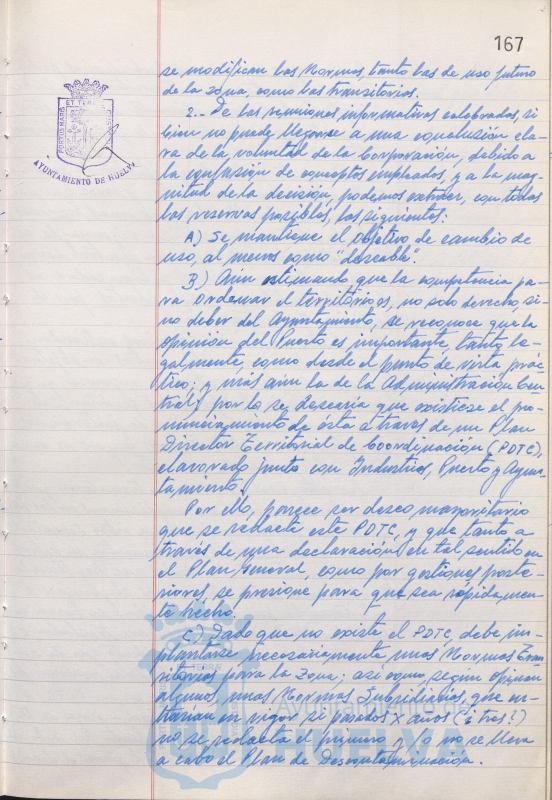 167
se modifican las Normas, tanto las de uso futuro
de la zona, como las transitorias.
2.- De las reuniones informativas celebradas, si
bien no puede llegarse a una conclusión cla-
ra de la voluntad de la Corporación, debido a
la confusión de conceptos empleados, y a la mag-
nitud de la decisión, podemos extraer, con todas
las reservas posibles, las siguientes:
A) Se mantiene el Objetivo de cambio de
uso, al menos como "deseable".
B) Aún estimando que la competencia pa-
ra Ordenar el territorio es, no solo derecho, si-
no deber del Ayuntamiento, se reconoce que la
opinión del Puerto es importante, tanto le-
galmente, como desde el punto de vista prác-
tico; y más aún la de la Administración Cen-
tral; por lo se desearía que existiese el pro-
nunciamiento de ésta a traves de un Plan
Director Territorial de Coordinación (PDTC),
elavorado junto con Industrias, Puerto y Ayun-
tamiento.
Por ello, parece ser deseo mayoritario
que se redacte este PDTC, y que tanto a
través de una declaración en tal sentido en
el Plan General, como por gestiones poste-
riores, se presione para que sea rápidamen-
te hecho.
C) Dado que no existe el PDTC, debe im-
plantarse necesariamente unas Normas Tran-
sitorias para la Zona; así como, segun opinan
algunos, unas Normas Subsidiarias, que en-
trarían en vigor si pasados X años (¿tres?)
no se redacta el primero y/o no se lleva
a cabo el Plan de Descontaminación.
PORTUS MARIS
ET TERRAE
CUSTODIA
AYUNTAMIENTO DE HUELVA
TERRAE
Ayuntamiento de
HUELVA